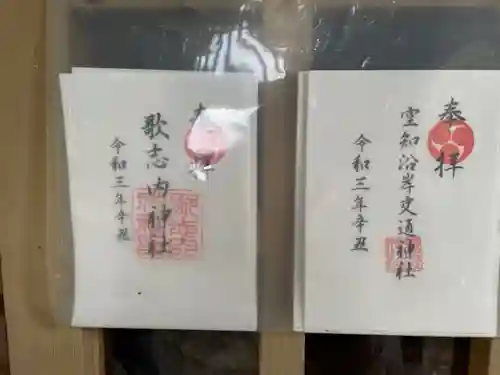 奉拝
空知沿岸交通神社
令和三年辛丑
歌志内神社
令和三年辛丑